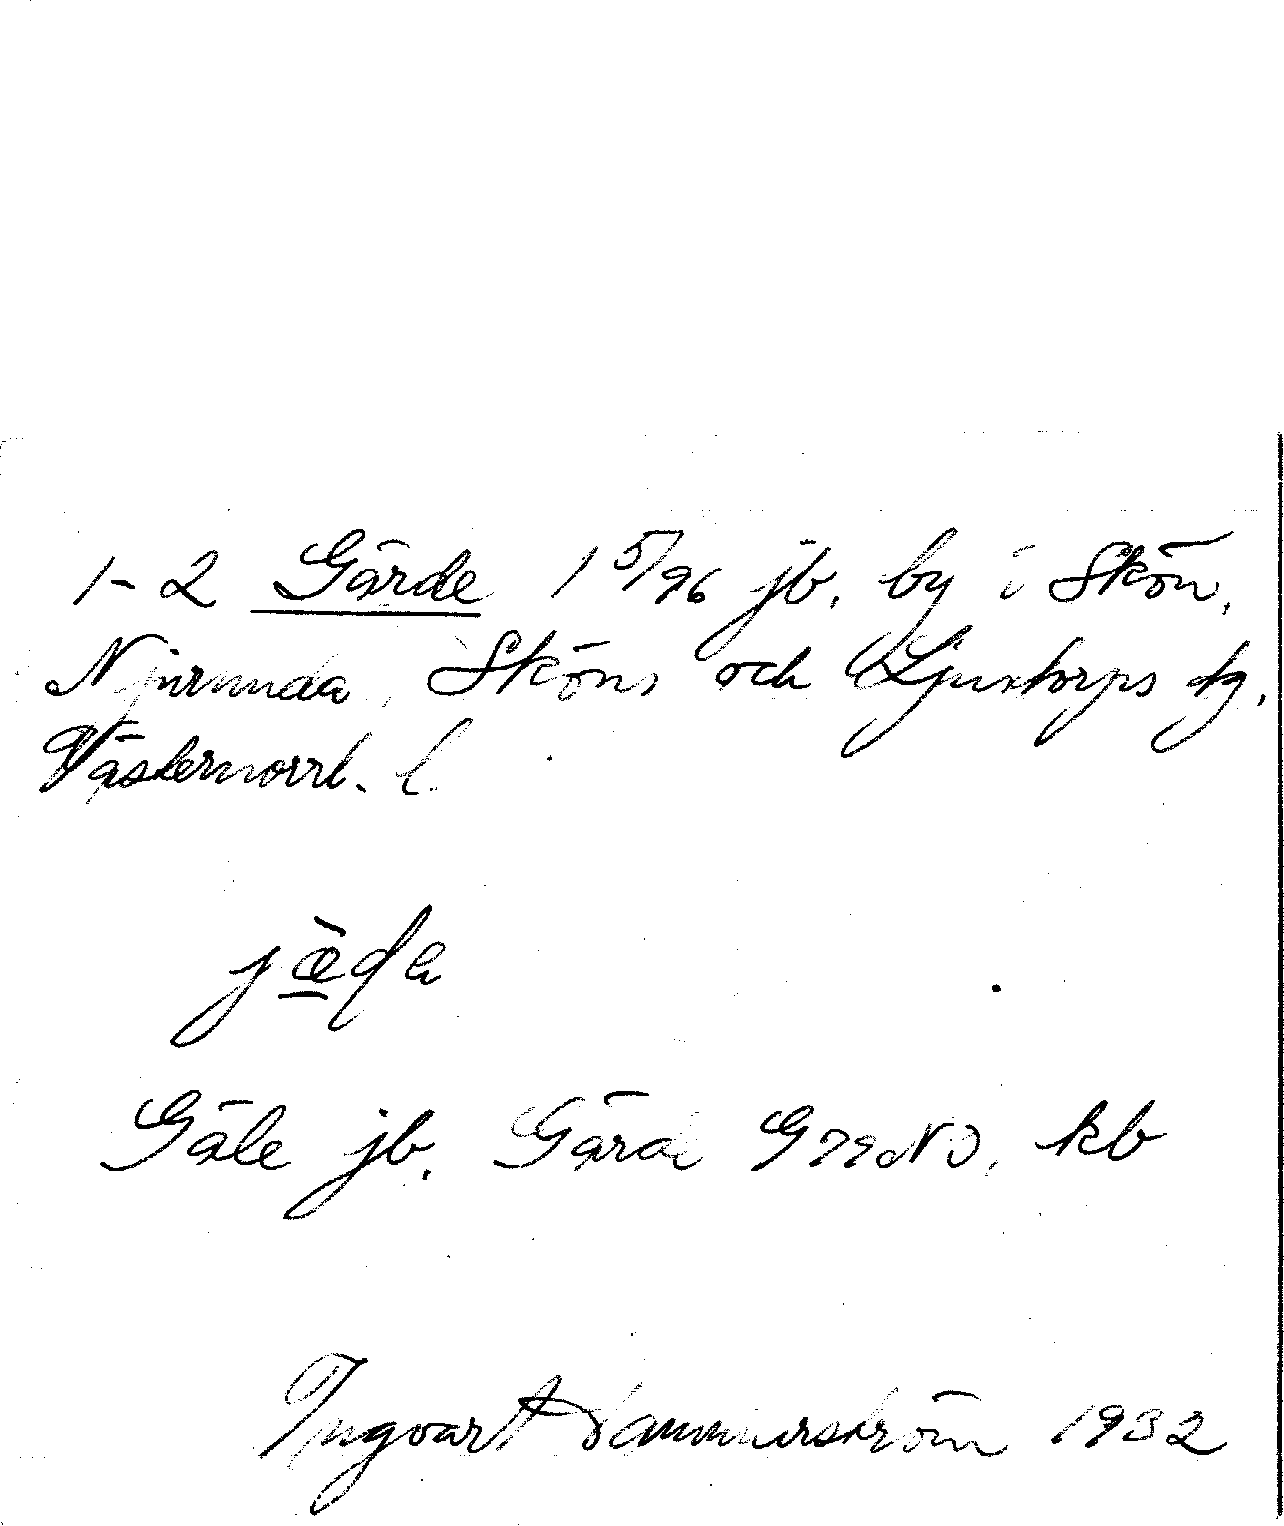 1-2 Gärde 1 5/96 jb. by i Skön,
Njurunda, Sköns och Ljustorps tg,
Västernorrl. l.
Gäle jb. Gärde G79NO, kb
Ingvart 1932